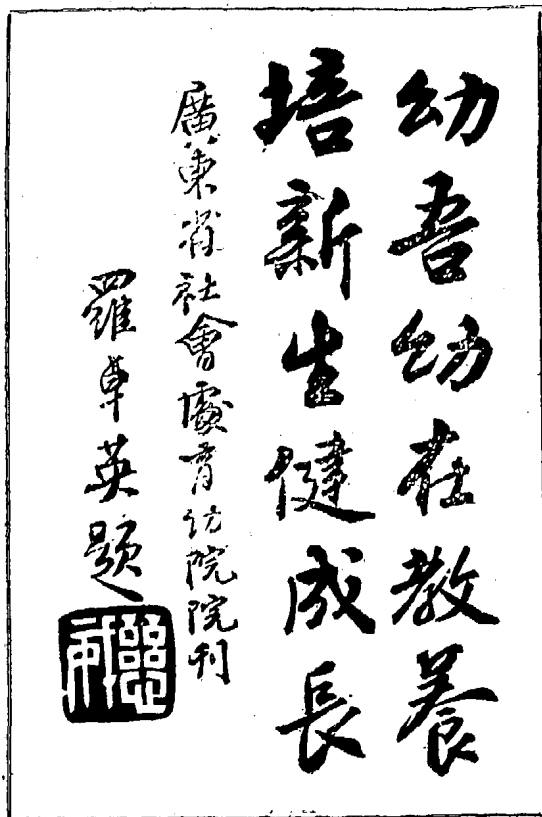 幼吾幼在教養
培新生健成長
廣東省社會處育幼院院刊
羅卓英題